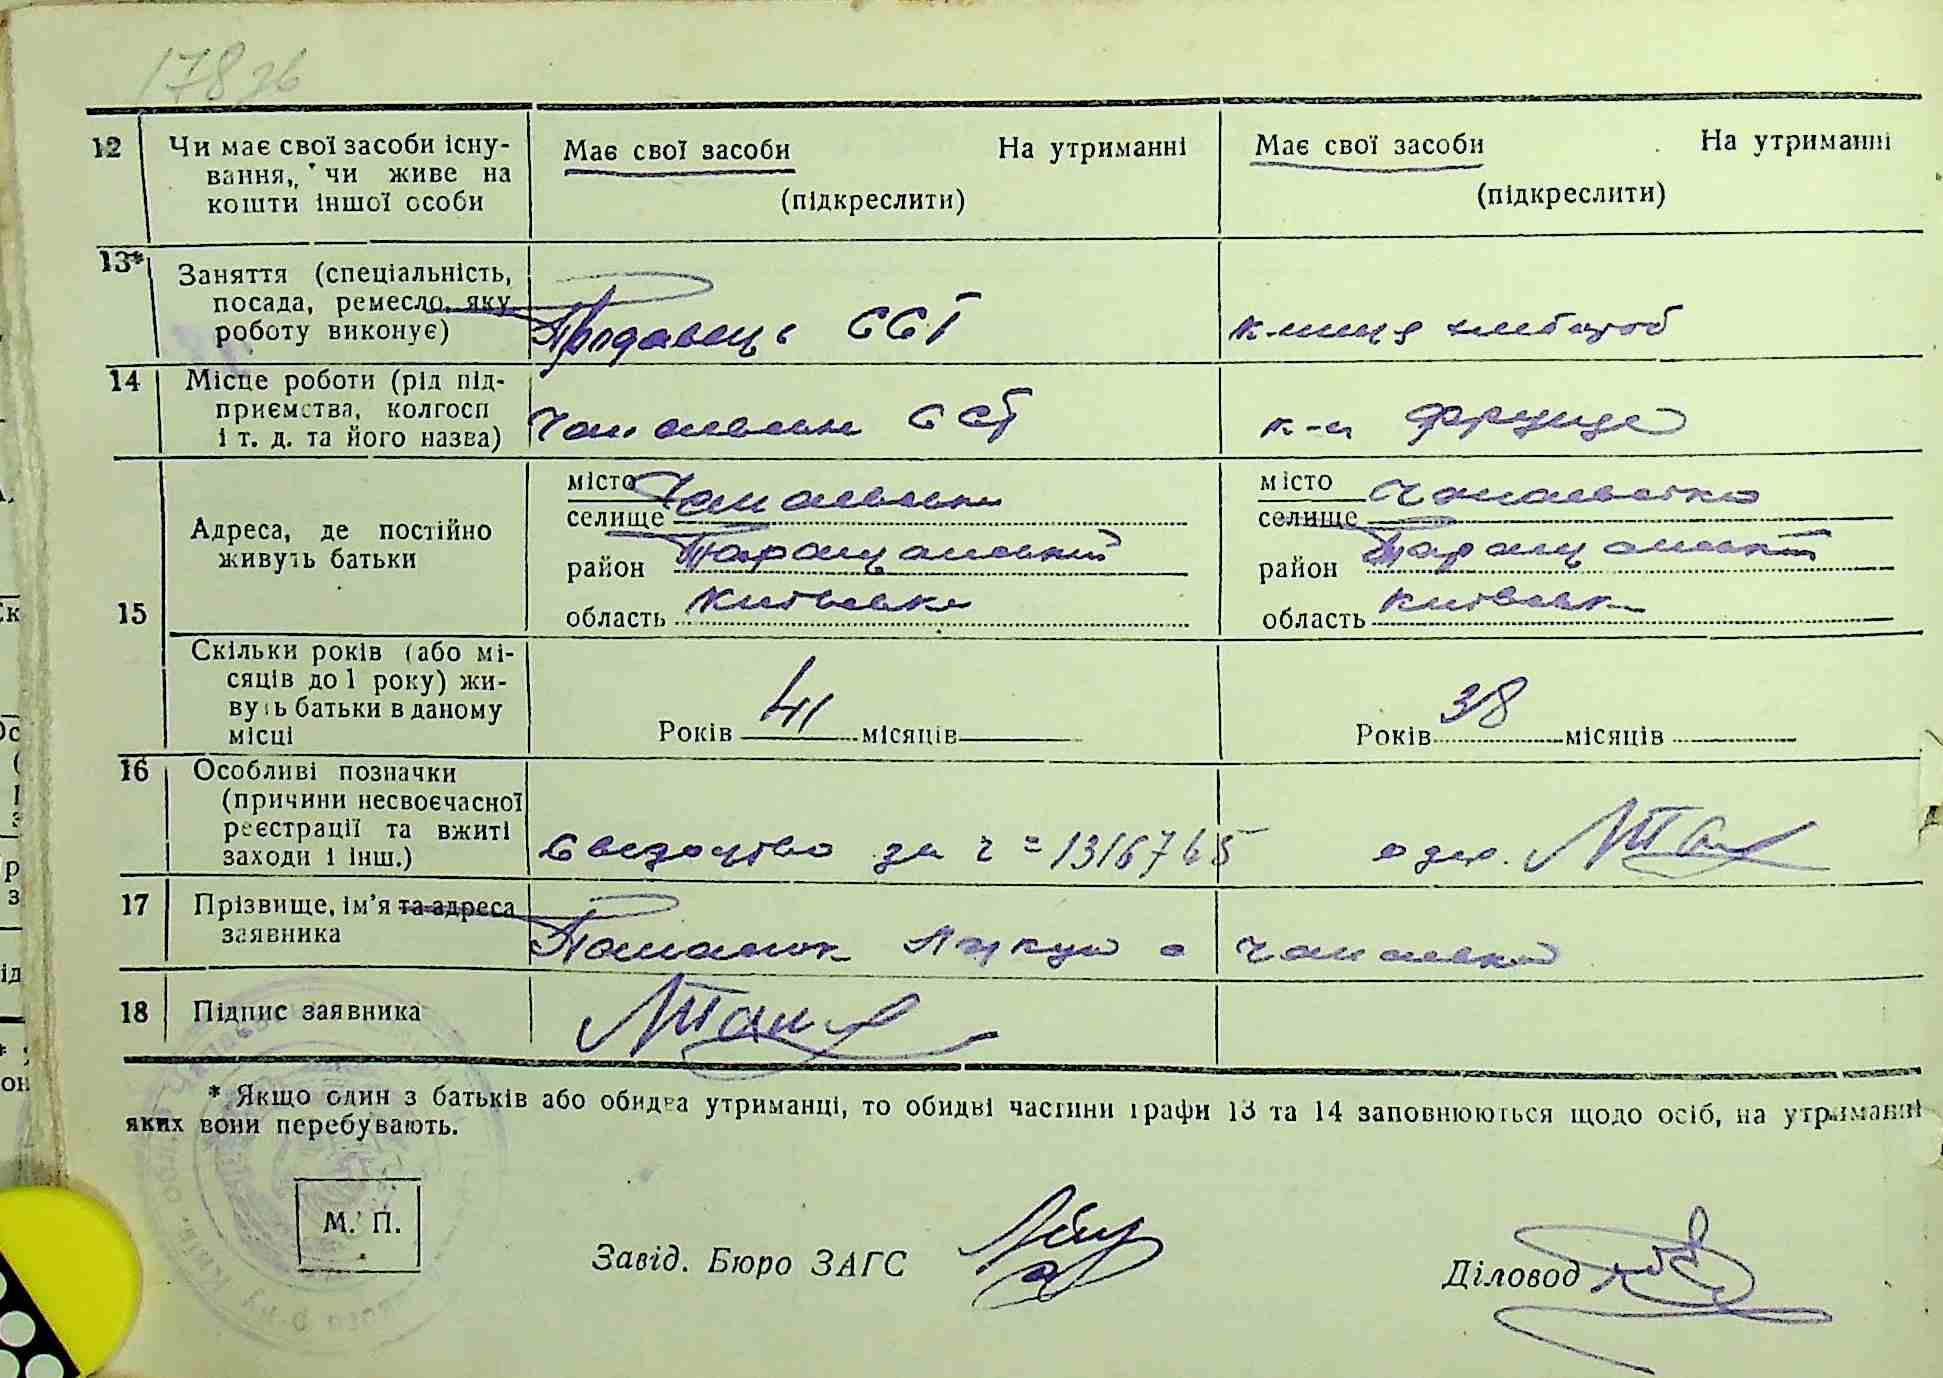 178 зв
12 Чи має свої засоби існу-
вання, чи живе на
кошти іншої особи
Має свої засоби На утриманні
(підкреслити)
Має свої засоби На утриманні
(підкреслити)
13* Заняття (спеціальність,
посада, ремесло, яку
роботу виконує)
Продавець ССТ
14 Місце роботи (рід під-
приємства, колгосп
і т. д. та його назва)
ССТ
к-п Фрунзе
15 Адреса, де постійно
живуть батьки
місто
селище
район Таращанський
область Київська
місто
селище
район Таращанський
область Київськ
Скільки років (або мі-
сяців до 1 року) жи-
вуть батьки в даному
місці
Років 41 місяців
Років 38 місяців
16 Особливі позначки
(причини несвоєчасної
реєстрації та вжиті
заходи і інш.)
Свидоцтво за ч = 1316765
17 Прізвище, ім'я та адреса
заявника
18 Підпис заявника
* Якщо один з батьків або обидва утриманці, то обидві частини графи 13 та 14 заповнюються щодо осіб, на утриманні
яких вони перебувають.
М. П.
Завід. Бюро ЗАГС
Діловод